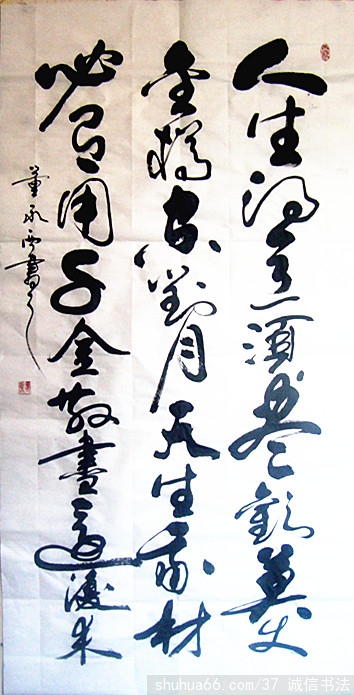 人生得意須尽歡莫使
金樽空對月天生我材
必有用千金散盡還復来
董西書
shuhua66.com/37 诚信书法